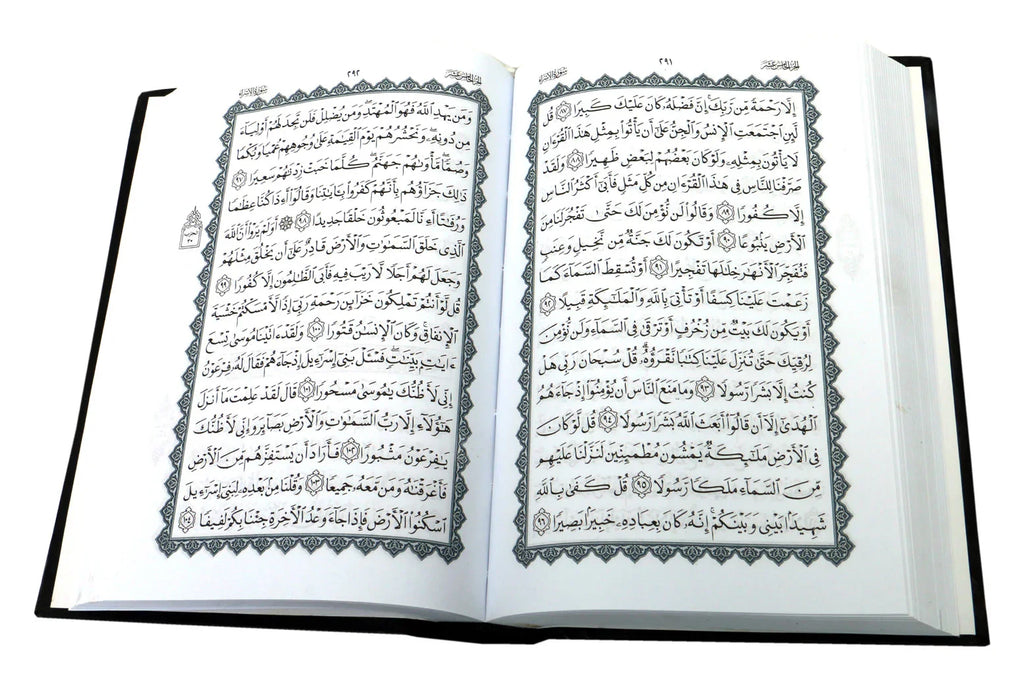 الجزء الخامس عشر
٢٩١
سورة الإسراء
إِلَّا رَحْمَةً مِّن رَّبِّكَ إِنَّ فَضْلَهُۥ كَانَ عَلَيْكَ كَبِيرًا ٨٧ قُل
لَّئِنِ ٱجْتَمَعَتِ ٱلْإِنسُ وَٱلْجِنُّ عَلَىٰٓ أَن يَأْتُوا۟ بِمِثْلِ هَٰذَا ٱلْقُرْءَانِ
لَا يَأْتُونَ بِمِثْلِهِۦ وَلَوْ كَانَ بَعْضُهُمْ لِبَعْضٍ ظَهِيرًا ٨٨ وَلَقَدْ
صَرَّفْنَا لِلنَّاسِ فِى هَٰذَا ٱلْقُرْءَانِ مِن كُلِّ مَثَلٍ فَأَبَىٰٓ أَكْثَرُ ٱلنَّاسِ
إِلَّا كُفُورًا ٨٩ وَقَالُوا۟ لَن نُّؤْمِنَ لَكَ حَتَّىٰ تَفْجُرَ لَنَا مِنَ
ٱلْأَرْضِ يَنۢبُوعًا ٩٠ أَوْ تَكُونَ لَكَ جَنَّةٌ مِّن نَّخِيلٍ وَعِنَبٍ
فَتُفَجِّرَ ٱلْأَنْهَٰرَ خِلَٰلَهَا تَفْجِيرًا ٩١ أَوْ تُسْقِطَ ٱلسَّمَآءَ كَمَا
زَعَمْتَ عَلَيْنَا كِسَفًا أَوْ تَأْتِىَ بِٱللَّهِ وَٱلْمَلَٰٓئِكَةِ قَبِيلًا ٩٢
أَوْ يَكُونَ لَكَ بَيْتٌ مِّن زُخْرُفٍ أَوْ تَرْقَىٰ فِى ٱلسَّمَآءِ وَلَن نُّؤْمِنَ
لِرُقِيِّكَ حَتَّىٰ تُنَزِّلَ عَلَيْنَا كِتَٰبًا نَّقْرَؤُهُۥ قُلْ سُبْحَانَ رَبِّى هَلْ
كُنتُ إِلَّا بَشَرًا رَّسُولًا ٩٣ وَمَا مَنَعَ ٱلنَّاسَ أَن يُؤْمِنُوٓا۟ إِذْ جَآءَهُمُ
ٱلْهُدَىٰٓ إِلَّآ أَن قَالُوٓا۟ أَبَعَثَ ٱللَّهُ بَشَرًا رَّسُولًا ٩٤ قُل لَّوْ كَانَ
فِى ٱلْأَرْضِ مَلَٰٓئِكَةٌ يَمْشُونَ مُطْمَئِنِّينَ لَنَزَّلْنَا عَلَيْهِم
مِّنَ ٱلسَّمَآءِ مَلَكًا رَّسُولًا ٩٥ قُلْ كَفَىٰ بِٱللَّهِ
شَهِيدًۢا بَيْنِى وَبَيْنَكُمْ إِنَّهُۥ كَانَ بِعِبَادِهِۦ خَبِيرًۢا بَصِيرًا ٩٦
الجزء الخامس عشر
٢٩٢
سورة الإسراء
وَمَن يَهْدِ ٱللَّهُ فَهُوَ ٱلْمُهْتَدِ وَمَن يُضْلِلْ فَلَن تَجِدَ لَهُمْ أَوْلِيَآءَ
مِن دُونِهِۦ وَنَحْشُرُهُمْ يَوْمَ ٱلْقِيَٰمَةِ عَلَىٰ وُجُوهِهِمْ عُمْيًا وَبُكْمًا
وَصُمًّا مَّأْوَىٰهُمْ جَهَنَّمُ كُلَّمَا خَبَتْ زِدْنَٰهُمْ سَعِيرًا ٩٧
ذَٰلِكَ جَزَآؤُهُم بِأَنَّهُمْ كَفَرُوا۟ بِـَٔايَٰتِنَا وَقَالُوٓا۟ أَءِذَا كُنَّا عِظَٰمًا
وَرُفَٰتًا أَءِنَّا لَمَبْعُوثُونَ خَلْقًا جَدِيدًا ٩٨ ۞ أَوَلَمْ يَرَوْا۟ أَنَّ ٱللَّهَ
ٱلَّذِى خَلَقَ ٱلسَّمَٰوَٰتِ وَٱلْأَرْضَ قَادِرٌ عَلَىٰٓ أَن يَخْلُقَ مِثْلَهُمْ
وَجَعَلَ لَهُمْ أَجَلًا لَّا رَيْبَ فِيهِ فَأَبَى ٱلظَّٰلِمُونَ إِلَّا كُفُورًا ٩٩
قُل لَّوْ أَنتُمْ تَمْلِكُونَ خَزَآئِنَ رَحْمَةِ رَبِّىٓ إِذًا لَّأَمْسَكْتُمْ خَشْيَةَ
ٱلْإِنفَاقِ وَكَانَ ٱلْإِنسَٰنُ قَتُورًا ١٠٠ وَلَقَدْ ءَاتَيْنَا مُوسَىٰ تِسْعَ
ءَايَٰتٍۭ بَيِّنَٰتٍ فَسْـَٔلْ بَنِىٓ إِسْرَٰٓءِيلَ إِذْ جَآءَهُمْ فَقَالَ لَهُۥ فِرْعَوْنُ
إِنِّى لَأَظُنُّكَ يَٰمُوسَىٰ مَسْحُورًا ١٠١ قَالَ لَقَدْ عَلِمْتَ مَآ أَنزَلَ
هَٰٓؤُلَآءِ إِلَّا رَبُّ ٱلسَّمَٰوَٰتِ وَٱلْأَرْضِ بَصَآئِرَ وَإِنِّى لَأَظُنُّكَ
يَٰفِرْعَوْنُ مَثْبُورًا ١٠٢ فَأَرَادَ أَن يَسْتَفِزَّهُم مِّنَ ٱلْأَرْضِ
فَأَغْرَقْنَٰهُ وَمَن مَّعَهُۥ جَمِيعًا ١٠٣ وَقُلْنَا مِنۢ بَعْدِهِۦ لِبَنِىٓ إِسْرَٰٓءِيلَ
ٱسْكُنُوا۟ ٱلْأَرْضَ فَإِذَا جَآءَ وَعْدُ ٱلْءَاخِرَةِ جِئْنَا بِكُمْ لَفِيفًا ١٠٤
الحزب
٣٠